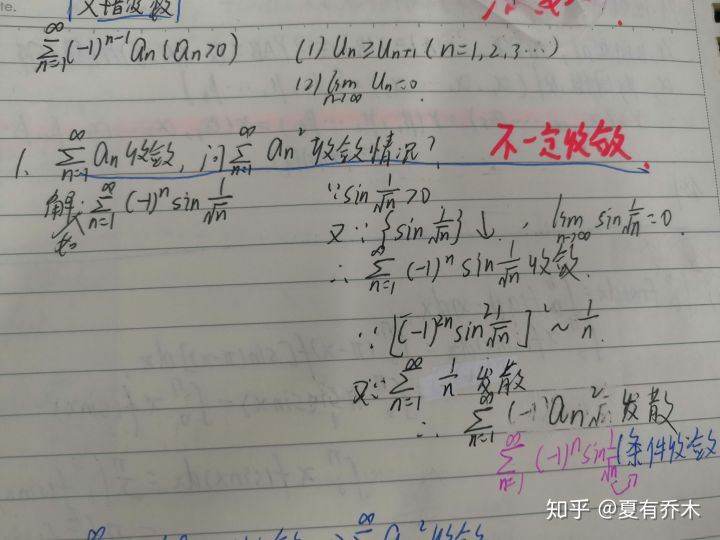 交错级数
∑_{n=1}^{∞}(-1)^{n-1}an(an>0) (1) Un≥Un+1(n=1,2,3…)
(2) lim_{n→∞} Un=0.
1. ∑_{n=1}^{∞} an收敛,问∑_{n=1}^{∞} an² 收敛情况? 不一定收敛.
解:∑_{n=1}^{∞}(-1)^n sin 1/√n ∵sin 1/√n >0
又∵{sin 1/√n}↓, lim_{n→∞} sin 1/√n=0.
∴∑_{n=1}^{∞}(-1)^n sin 1/√n 收敛.
∵[(-1)^{2n} sin² 1/√n] ~ 1/n.
又∵∑_{n=1}^{∞} 1/n 发散
∴∑_{n=1}^{∞} an² 发散
∑_{n=1}^{∞}(-1)^n sin 1/√n (条件收敛
∑^{∞} an² 收敛
知乎 @夏有乔木